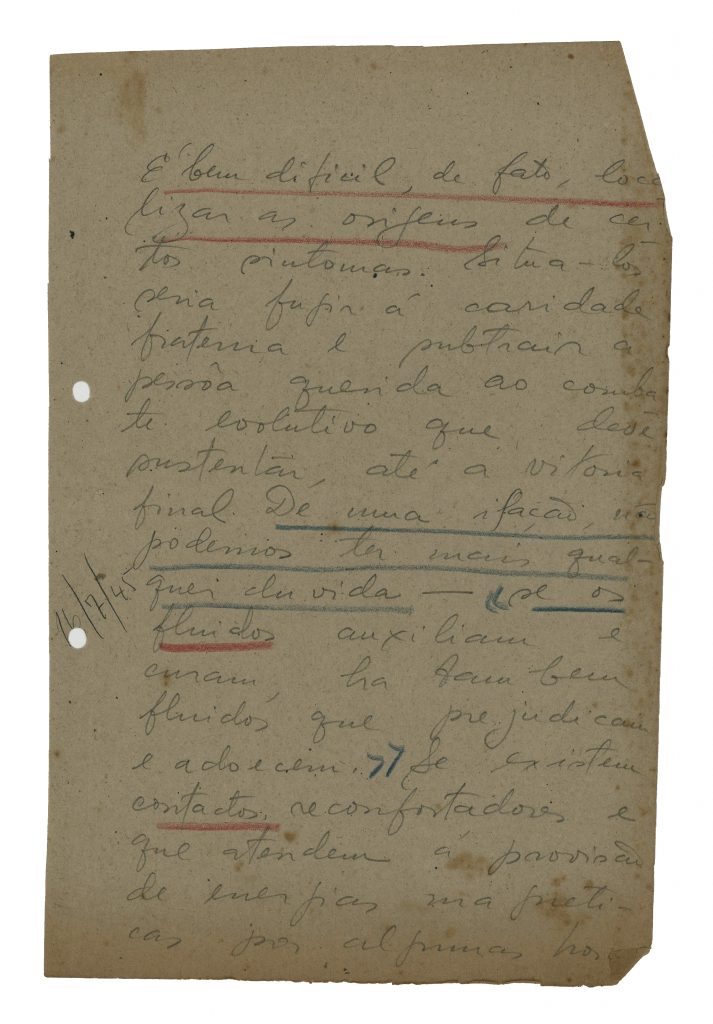 É bem dificil, de fato, loca
lizar as origens de cer-
tos sintomas. Situa-los
seria fugir á caridade
fraterna e subtrair a
pessôa querida ao comba
te evolutivo que deve
sustentar, até a vitoria
final. De uma ilação, não
podemos ter mais qual-
quer duvida — "se os
fluidos auxiliam e
curam, ha tambem
fluidos que prejudicam
e adoecem." Se existem
contactos reconfortadores e
que atendem á provisão
de energias magneti-
cas por algumas horas
16/7/45